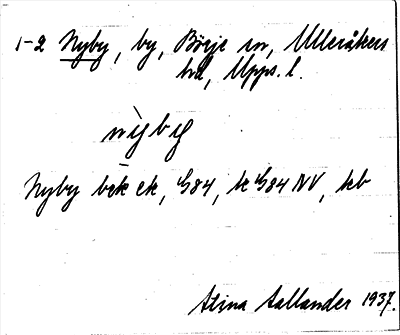 1-2 Nyby, by, Börje sn, Ulleråkers
hd, Upps. l.
nỳby
Nyby bek ek, G84, k G84 NV, hb
Stina Sallander 1937.